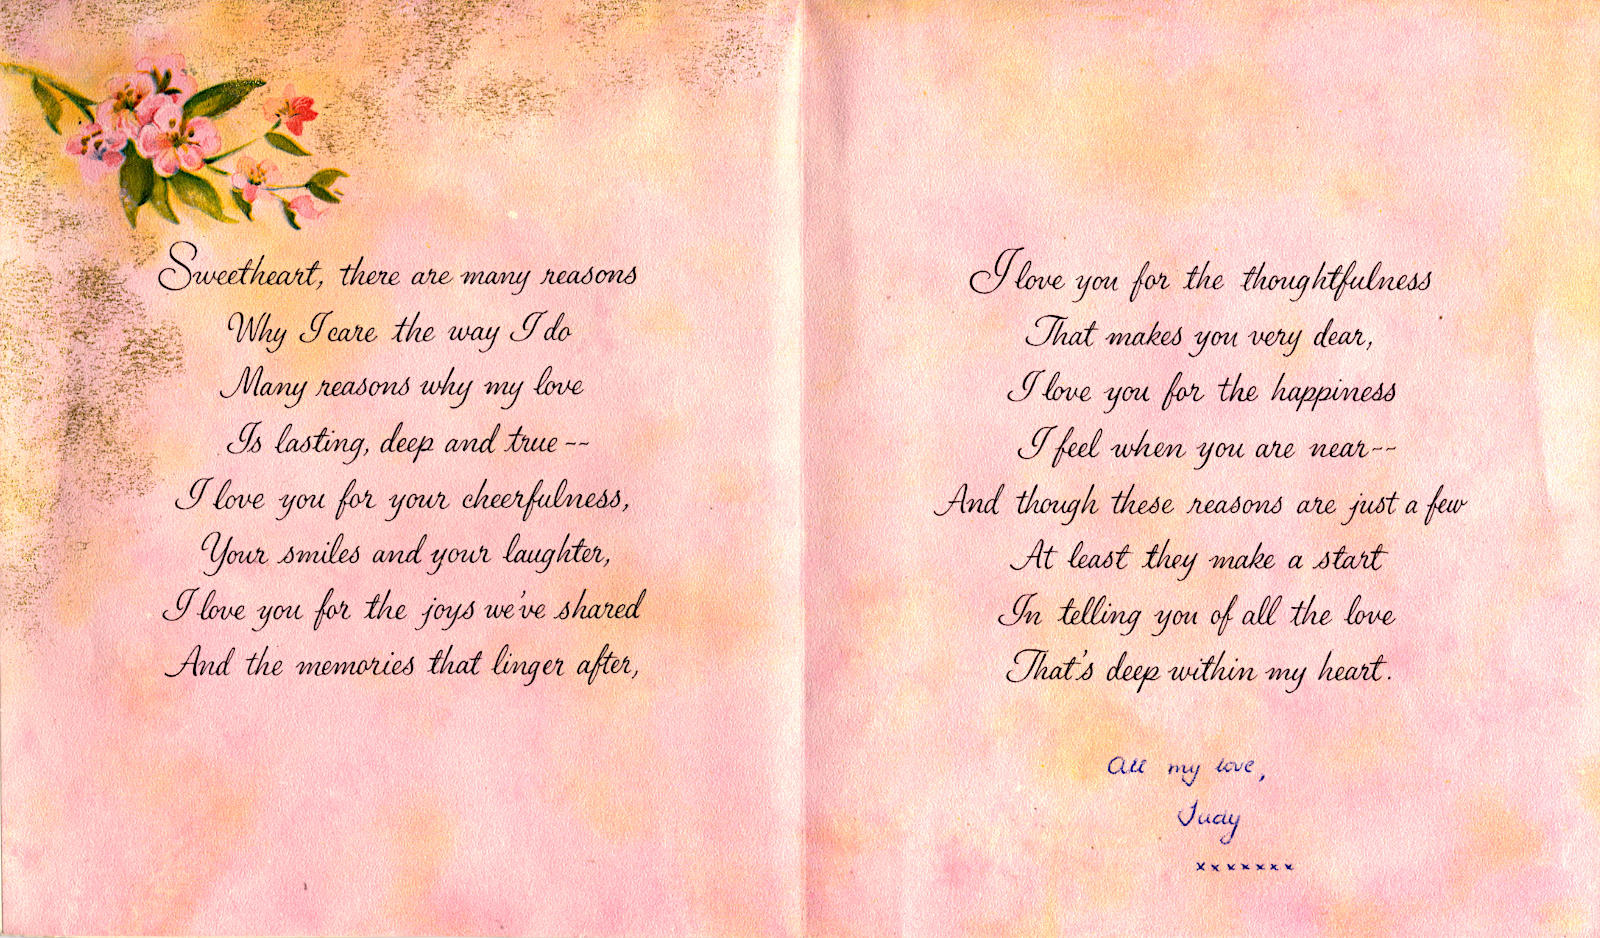 Sweetheart, there are many reasons
Why I care the way I do
Many reasons why my love
Is lasting, deep and true --
I love you for your cheerfulness,
Your smiles and your laughter,
I love you for the joys we've shared
And the memories that linger after,
I love you for the thoughtfulness
That makes you very dear,
I love you for the happiness
I feel when you are near--
And though these reasons are just a few
At least they make a start
In telling you of all the love
That's deep within my heart.
All my love,
Judy
xxxxxxx